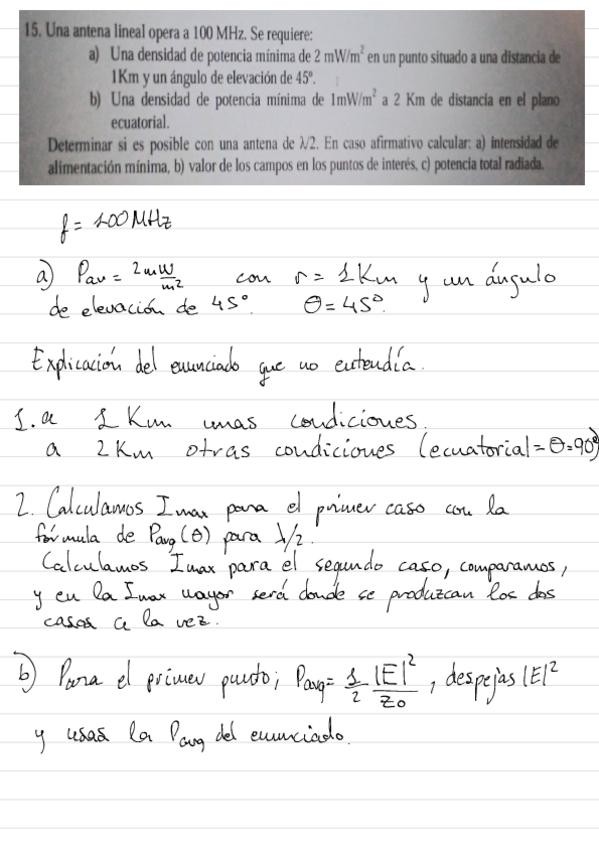 15. Una antena lineal opera a 100 MHz. Se requiere:
a) Una densidad de potencia mínima de 2 mW/m² en un punto situado a una distancia de
1Km y un ángulo de elevación de 45º.
b) Una densidad de potencia mínima de 1mW/m² a 2 Km de distancia en el plano
ecuatorial.
Determinar si es posible con una antena de λ/2. En caso afirmativo calcular: a) intensidad de
alimentación mínima, b) valor de los campos en los puntos de interés, c) potencia total radiada.
f = 100 MHz
a) Pav = 2mW/m² con r = 1Km y un ángulo
de elevación de 45º. θ = 45º.
Explicación del enunciado que no entendía.
1. a 1 Km unas condiciones.
a 2 Km otras condiciones (ecuatorial = θ=90º)
2. Calculamos Imax para el primer caso con la
fórmula de Pavg(θ) para λ/2.
Calculamos Imax para el segundo caso, comparamos,
y en la Imax mayor será donde se produzcan los dos
casos a la vez.
b) Para el primer punto; Pavg = 1/2 |E|²/Z₀, despejas |E|²
y usas la Pavg del enunciado.